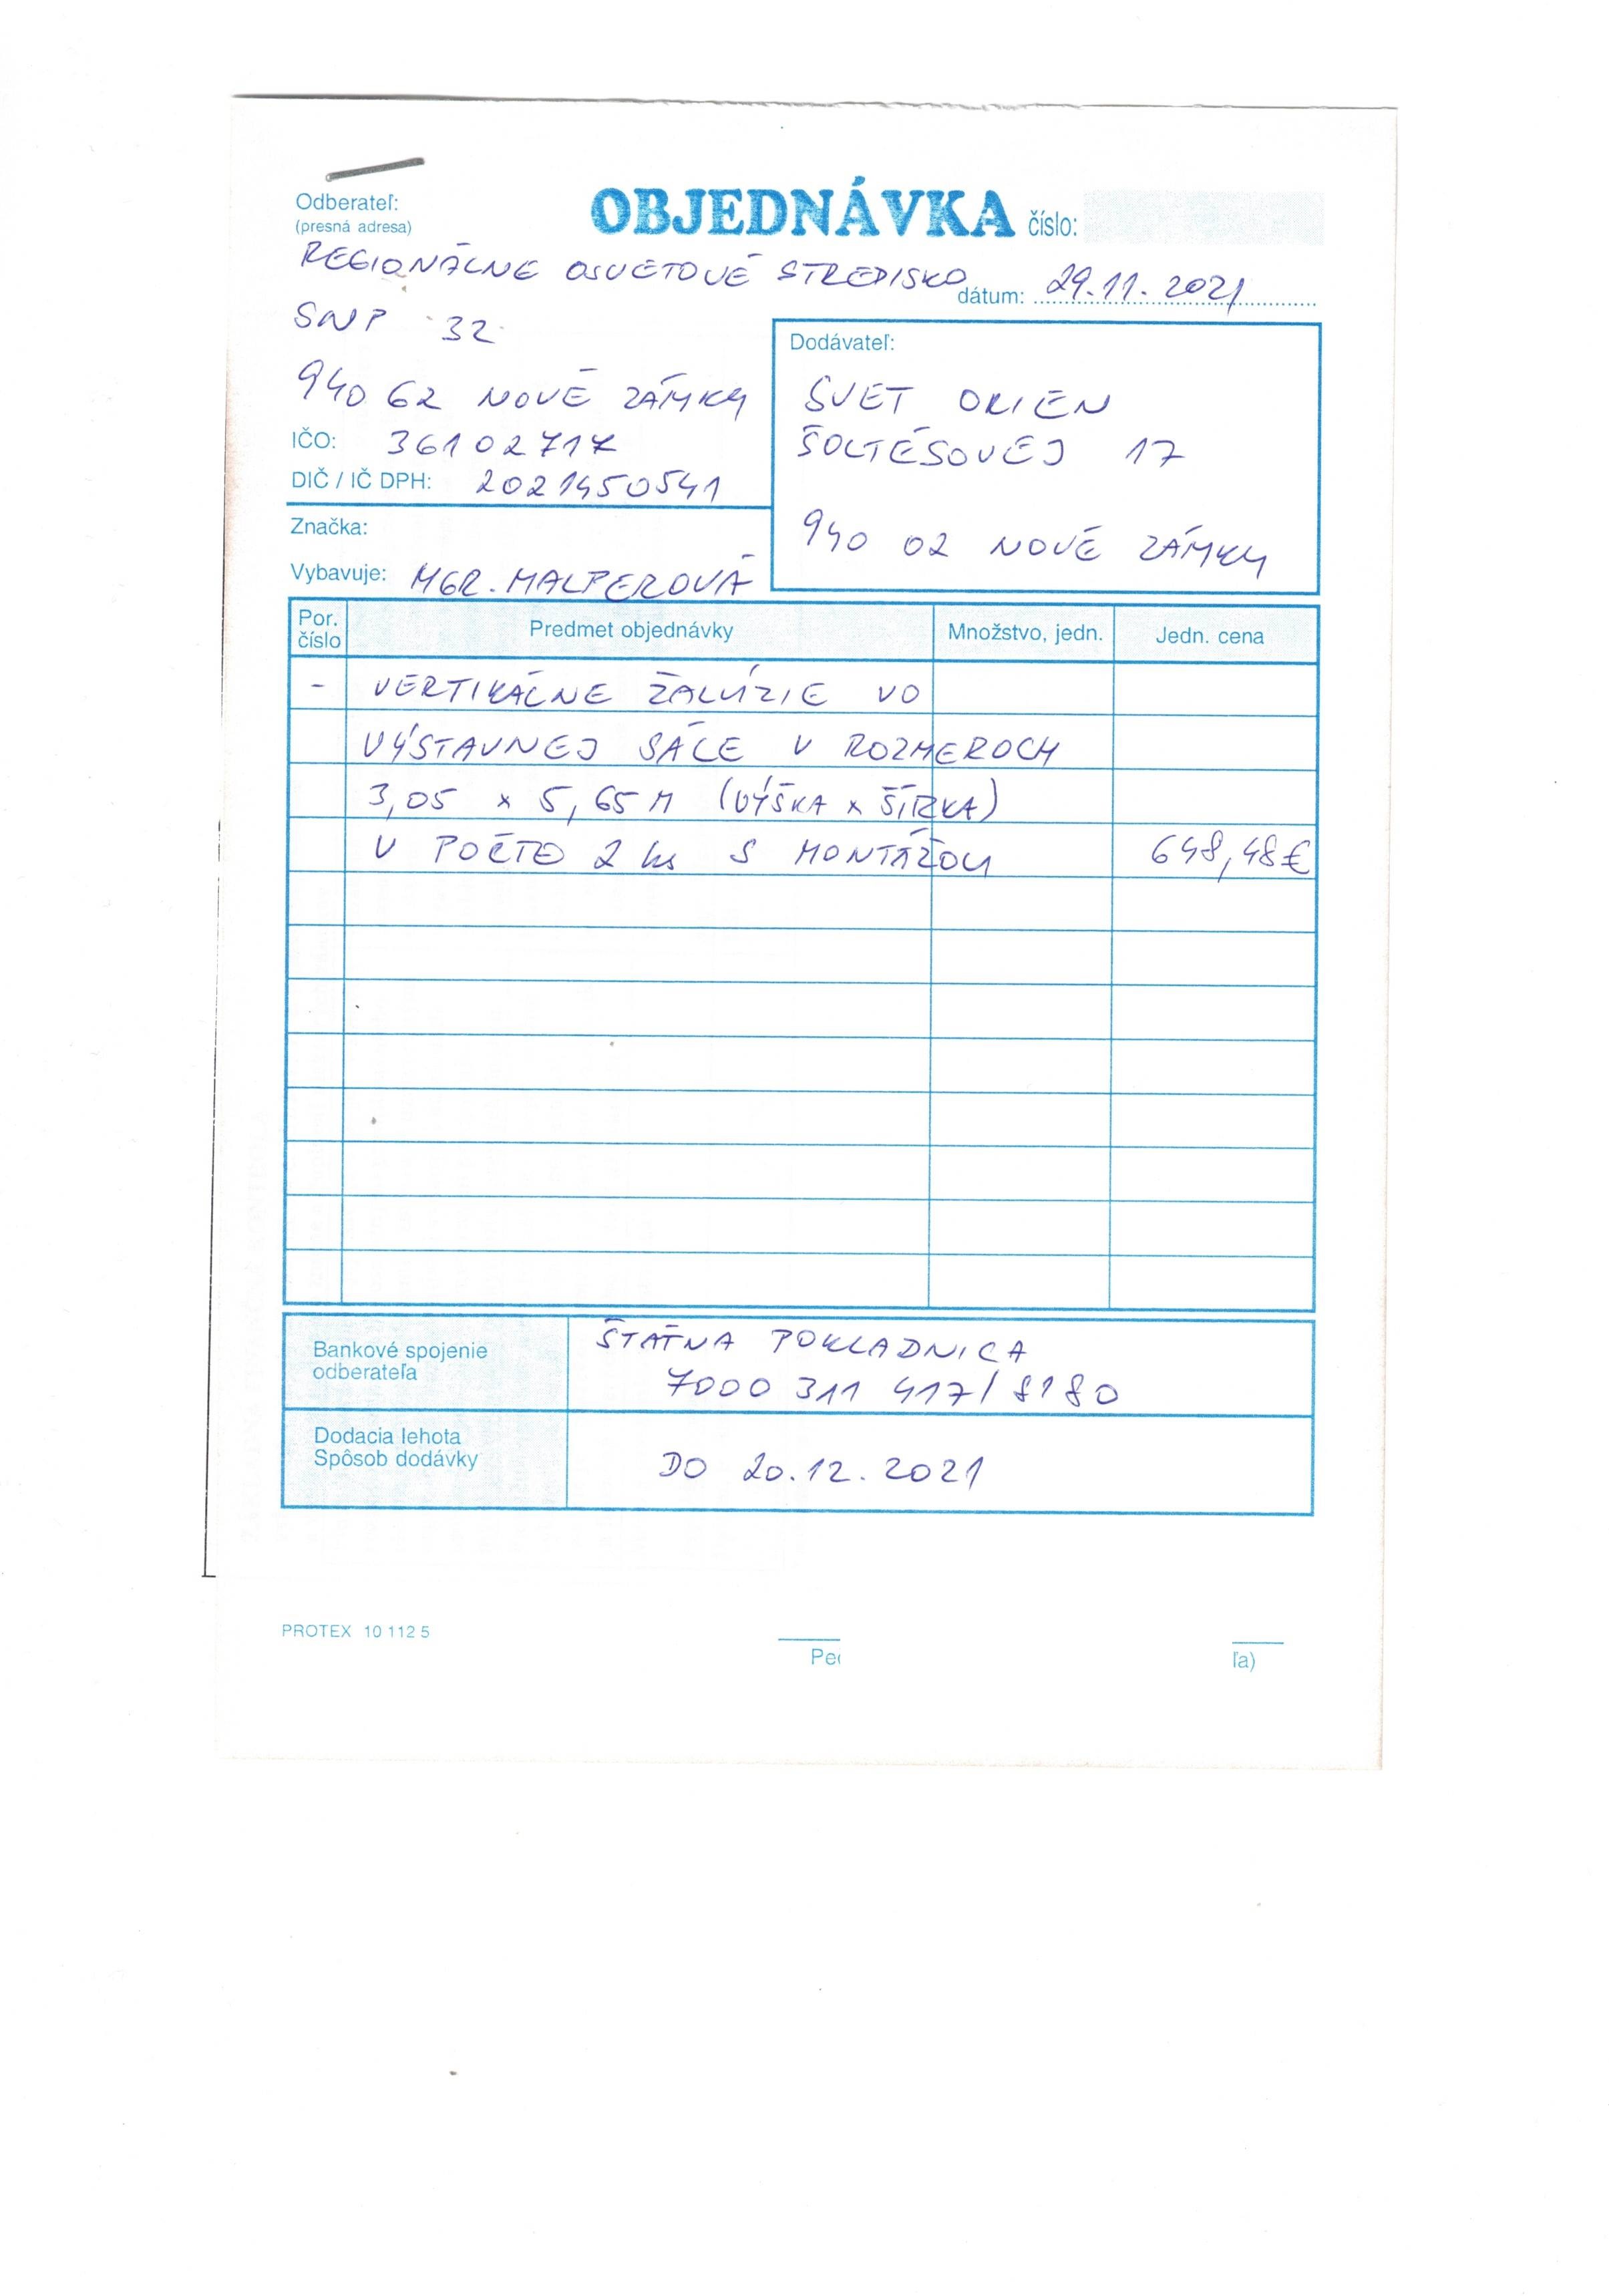 Odberateľ:
(presná adresa)
OBJEDNÁVKA číslo:
REGIONÁLNE OSVETOVÉ STREDISKO
dátum: 29.11.2021
SNP 32
940 62 NOVÉ ZÁMKY
IČO: 36102717
DIČ / IČ DPH: 2021450541
Značka:
Vybavuje: MGR. MALPEROVÁ
Dodávateľ:
SVET OKIEN
ŠOLTÉSOVEJ 17
940 02 NOVÉ ZÁMKY
Por. číslo Predmet objednávky Množstvo, jedn. Jedn. cena
- VERTIKÁLNE ŽALÚZIE VO
VÝSTAVNEJ SÁLE V ROZMEROCH
3,05 x 5,65 M (VÝŠKA x ŠÍRKA)
V POČTE 2 ks S MONTÁŽOU 648,48€
Bankové spojenie
odberateľa
ŠTÁTNA POKLADNICA
7000 311 417/8180
Dodacia lehota
Spôsob dodávky
DO 20.12.2021
PROTEX 10 112 5
Pe
ľa)